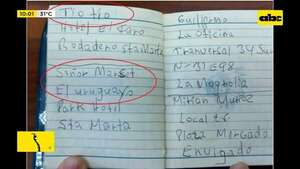 10:01 31°C
abc
Tio tio
Hotel El Faro
Rodadero sta Marta
Sinor Marset
El uruguayo
Park Hotil
Sta Marta
Guillermo
La Oficina
Tranversal 34 Sur
N=31E98
La Magnolia
Mirian Muñoz
Local
Plaza Mercado
Envigado